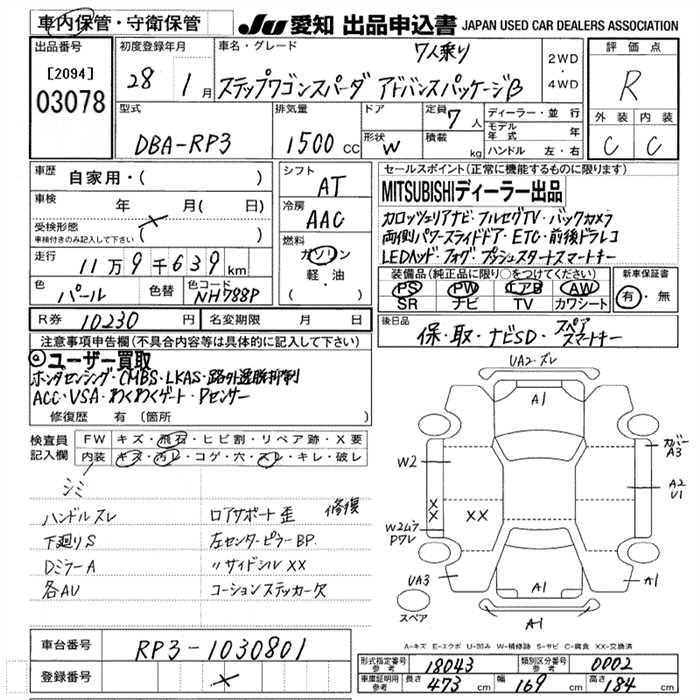 車内保管・守衛保管
JU 愛知 出品申込書 JAPAN USED CAR DEALERS ASSOCIATION
出品番号
[2094]
03078
初度登録年月
28 1月
車名・グレード
7人乗り
ステップワゴンスパーダ アドバンスパッケージβ
2WD
・
4WD
評価点
R
外装 内装
C C
型式
DBA-RP3
排気量
1500 CC
ドア
形状 W
定員 7人
積載 kg
ディーラー・並行
モデル年式 年
ハンドル 左・右
車歴
自家用・( )
車検 年 月( 日)
受検形態
車検付きのみ記入して下さい ( )
走行 11万9千639km
色 パール
色替
色コード NH788P
シフト AT
冷房 AAC
燃料
ガソリン
軽・油
( )
セールスポイント(正常に機能するものに限ります)
MITSUBISHIディーラー出品
カロッツェリアナビ・フルセグTV・バックカメラ
両側パワースライドドア・ETC・前後ドラレコ
LEDヘッド・フォグ・プッシュスタートスマートキー
装備品(純正品に限り○をつけてください)
PS PW エアB AW
SR ナビ TV カワシート
新車保証書
有・無
R券 10230円
名変期限 月 日
後日品
保・取・ナビSD・スペアスマートキー
注意事項申告欄(不具合内容等は具体的に記入して下さい)
◎ユーザー買取
ホンダセンシング・CMBS・LKAS・路外逸脱抑制
ACC・VSA・わくわくゲート・Pセンサー
修復歴 有 (箇所 )
検査員
記入欄
FW キズ・飛石・ヒビ割・リペア跡・X要
内装 キズ・汚レ・コゲ・穴・スレ・キレ・破レ
シミ
ハンドルスレ
下廻りS
DミラーA
各AU
ロアサポート歪 修復
左センターピラーBP.
〃サイドシルXX
コーションステッカー欠
UA2・ズレ
A1
カバー
A3
W2
A2
U1
X
X
XX
W2ムラ
Pワレ
UA3
A1
A1
A1
スペア
A=キズ E=エクボ U=凹み W=補修跡 S=サビ C=腐食 XX=交換済
車台番号 RP3-1030801
登録番号
形式指定番号
参考 18043
類別区分番号
参考 0002
車庫証明用
参考 長さ 473cm 幅 169cm 高さ 184cm